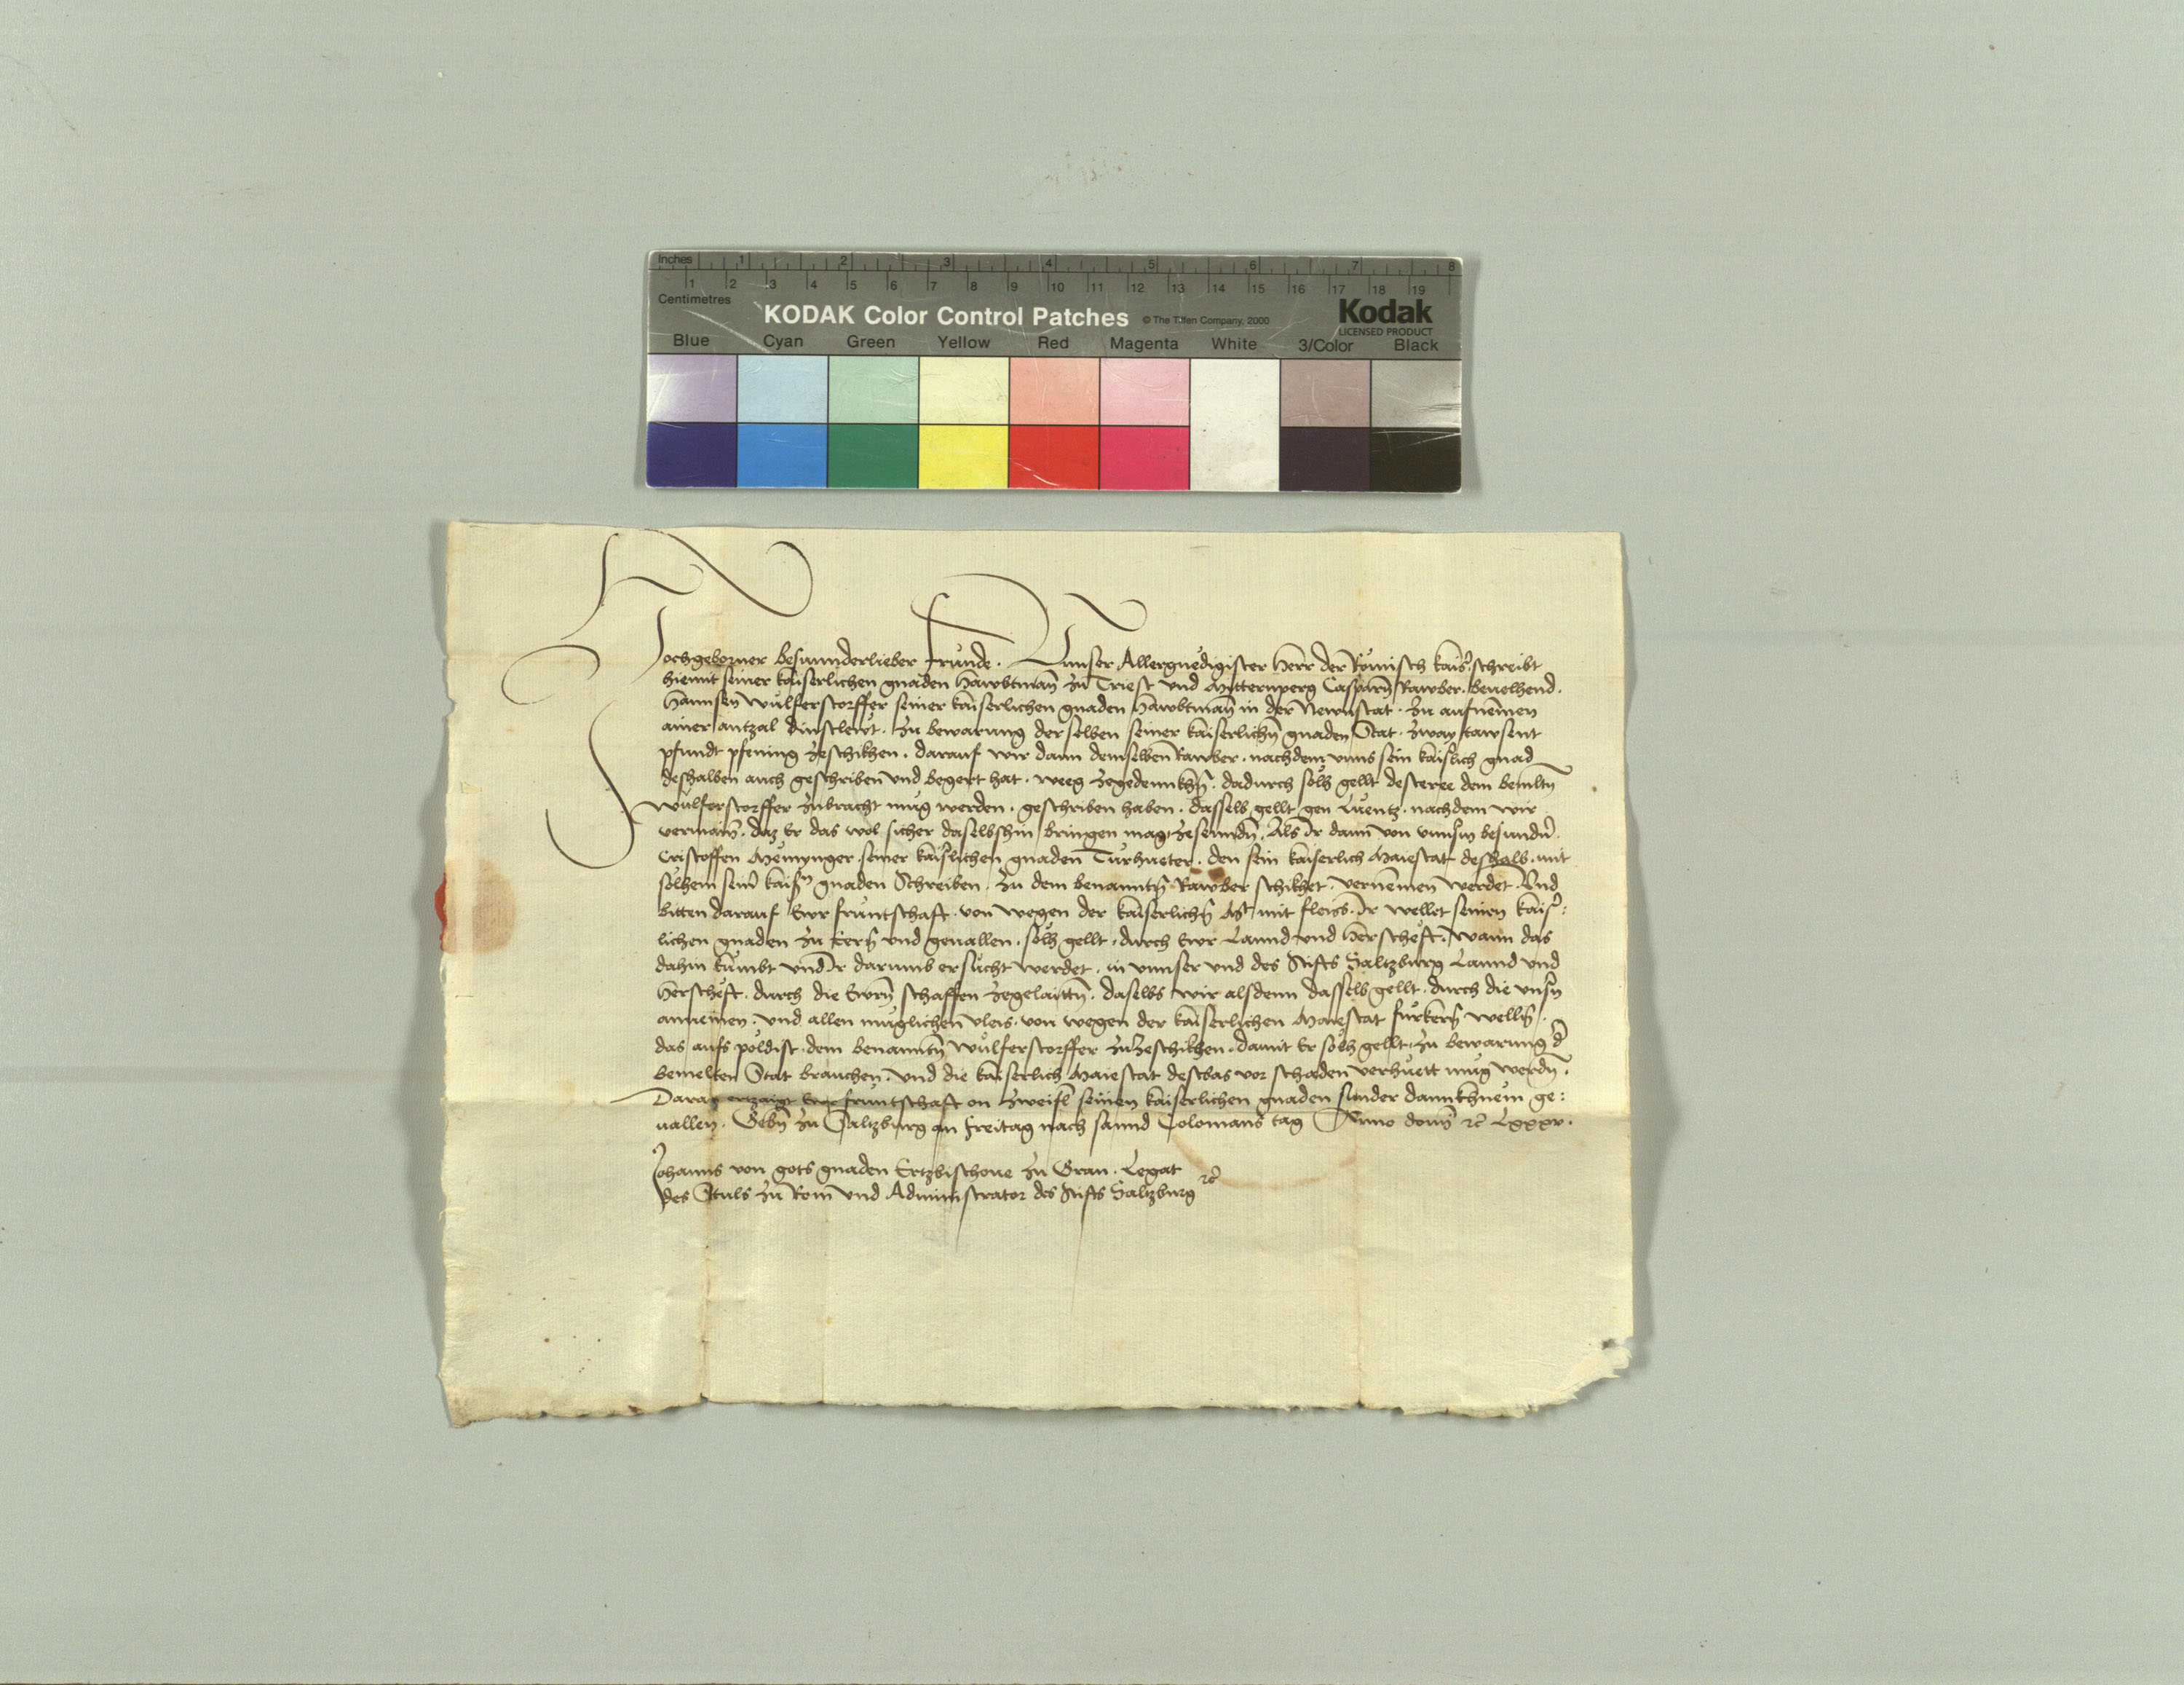 Inches 1 2 3 4 5 6 7 8
1 2 3 4 5 6 7 8 9 10 11 12 13 14 15 16 17 18 19
Centimetres
KODAK Color Control Patches © The Tiffen Company, 2000 Kodak
LICENSED PRODUCT
Blue Cyan Green Yellow Red Magenta White 3/Color Black
Hochgeborner besunnderlieber frůnde. Unnser Allergnedigister herr der Römisch kais̄ schreibt
hiemit seiner kaiserlichen gnaden hawbtman̄ zu Triest und Mitternperg Casparn̄ Rawber. beuelhend.
hannsen Wulferstorffer seiner kaiserlichen gnaden hawbtman̄ in der Newnstat. zu aufnemen
ainer antzal dinstlewt. zu bewarung derselben seiner kaiserlichn̄ gnaden Stat. zway tawsent
pfundt pfening zeschikhen. darauf wir dann demselben Rawber. nachdem unns sein kaislich gnad
deshalben auch geschriben und begert hat. weeg zegedennkhn̄. dadurch solh gellt desteree dem bemltn̄
Wulferstorffer zubracht mug werden. geschriben haben. dasselb gellt gen Luentz. nachdem wir
vermain̄. daz Er das wol sicher daselbshin bringen mag zesenndn̄. Als Ir dann von unnsm̄ besundn̄.
Cristoffen seiner kaislichen gnaden Turhueter. den sein kaiserlich Maiestat deshalb. mit
solhem seim̄ kaisn̄ gnaden Schreiben. zu dem benanntn̄ Rawber schikhet. vernemen werdet. Und
bitten darauf Ewr fruntschaft. von wegen der kaiserlichn̄ Mt mit fleiss. Ir wellet seinen kais:
lichen gnaden zu eern̄ und geuallen. solh gellt. durch Ewr Lannd und herscheft. wann das
dahin kumbt und Ir darumb ersucht werdet. in unnser und des Stifts Saltzburg Lannd und
herscheft. durch die Ewrn̄ schaffen zegelaittn̄. daselbs wir alsdenn dasselb gellt. durch die unsn̄
annemen. und allen muglichen vleis. von wegen der kaiserlichen Maiestat furkern̄ welln̄.
das aufs poldist. dem benanntn̄ Wulferstorffer zuzeschikhen. damit Er solh gellt. zu bewarung d̄
bemelten Stat brauchen. und die kaiserlich Maiestat destbas vor schaden verhuett mug werdn̄.
Daran ertzaigt Ewr fruntschaft on zweifl seinen kaiserlichen gnaden sunder dannkhnem ge:
uallen. Gebn̄ zu Saltzburg an freitag nach sannd Colomans tag Anno domī ꝛc̄ Lxxxv.
Johanns von gots gnaden Ertzbischoue zu Gran. Legat
des Stuls zu Rom und Administrator des Stifts Saltzburg ꝛc̄